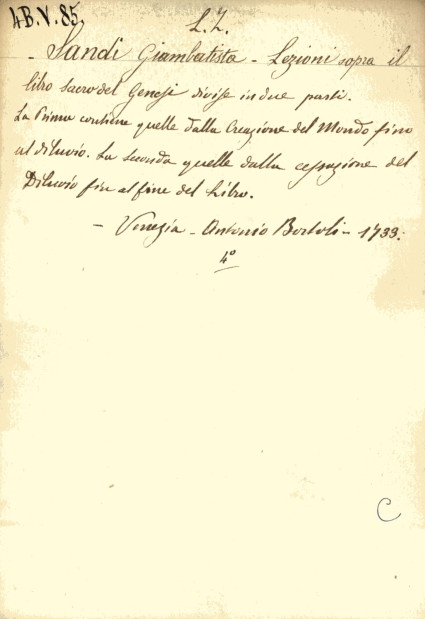 4B.V.85.
L.Z.
- Sandi Giambatista - Lezioni sopra il
libro sacro del Genesi divise in due parti.
La Prima contiene quelle dalla Creazione del Mondo fino
al diluvio. La seconda quelle dalla cessazione del
Diluvio fin al fine del Libro.
- Venezia - Antonio Bortoli - 1733.
4°
C